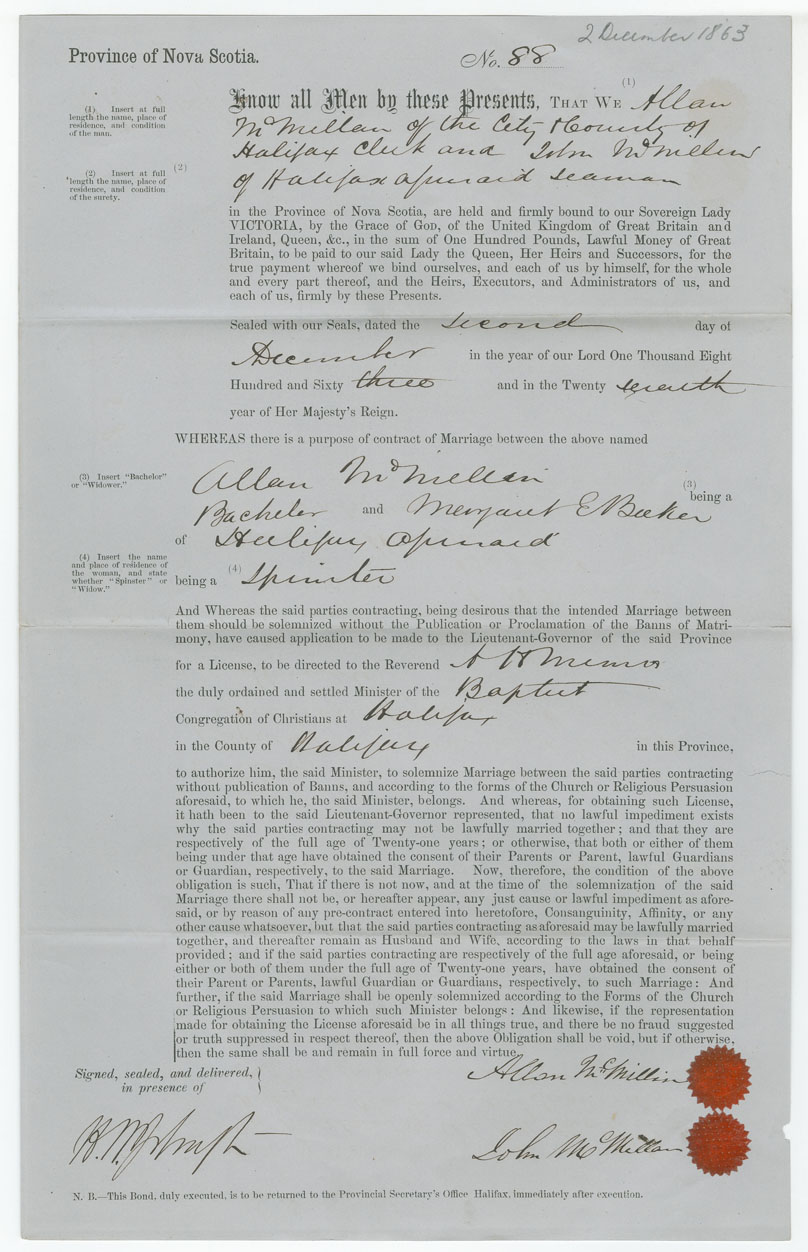 2 December 1863
Province of Nova Scotia.
No. 88
(1)
Know all Men by these Presents, THAT WE Allan
McMillan of the City & County of
Halifax Clerk and John McMillan
of Halifax aforesaid Seaman
(1) Insert at full
length the name, place of
residence, and condition
of the man.
(2)
(2) Insert at full
length the name, place of
residence, and condition
of the surety.
in the Province of Nova Scotia, are held and firmly bound to our Sovereign Lady
VICTORIA, by the Grace of GOD, of the United Kingdom of Great Britain and
Ireland, Queen, &c., in the sum of One Hundred Pounds, Lawful Money of Great
Britain, to be paid to our said Lady the Queen, Her Heirs and Successors, for the
true payment whereof we bind ourselves, and each of us by himself, for the whole
and every part thereof, and the Heirs, Executors, and Administrators of us, and
each of us, firmly by these Presents.
Sealed with our Seals, dated the second day of
December in the year of our Lord One Thousand Eight
Hundred and Sixty three and in the Twenty seventh
year of Her Majesty's Reign.
WHEREAS there is a purpose of contract of Marriage between the above named
(3) Insert "Bachelor"
or "Widower."
Allan McMillan (3) being a
Bachelor and Margaret E Becker
of Halifax aforesaid
(4) Insert the name
and place of residence of
the woman, and state
whether "Spinster" or
"Widow."
being a (4) Spinster
And Whereas the said parties contracting, being desirous that the intended Marriage between
them should be solemnized without the Publication or Proclamation of the Banns of Matri-
mony, have caused application to be made to the Lieutenant-Governor of the said Province
for a License, to be directed to the Reverend A H Munro
the duly ordained and settled Minister of the Baptist
Congregation of Christians at Halifax
in the County of Halifax in this Province,
to authorize him, the said Minister, to solemnize Marriage between the said parties contracting
without publication of Banns, and according to the forms of the Church or Religious Persuasion
aforesaid, to which he, the said Minister, belongs. And whereas, for obtaining such License,
it hath been to the said Lieutenant-Governor represented, that no lawful impediment exists
why the said parties contracting may not be lawfully married together; and that they are
respectively of the full age of Twenty-one years; or otherwise, that both or either of them
being under that age have obtained the consent of their Parents or Parent, lawful Guardians
or Guardian, respectively, to the said Marriage. Now, therefore, the condition of the above
obligation is such, That if there is not now, and at the time of the solemnization of the said
Marriage there shall not be, or hereafter appear, any just cause or lawful impediment as afore-
said, or by reason of any pre-contract entered into heretofore, Consanguinity, Affinity, or any
other cause whatsoever, but that the said parties contracting as aforesaid may be lawfully married
together, and thereafter remain as Husband and Wife, according to the laws in that behalf
provided; and if the said parties contracting are respectively of the full age aforesaid, or being
either or both of them under the full age of Twenty-one years, have obtained the consent of
their Parent or Parents, lawful Guardian or Guardians, respectively, to such Marriage: And
further, if the said Marriage shall be openly solemnized according to the Forms of the Church
or Religious Persuasion to which such Minister belongs: And likewise, if the representation
made for obtaining the License aforesaid be in all things true, and there be no fraud suggested
or truth suppressed in respect thereof, then the above Obligation shall be void, but if otherwise,
then the same shall be and remain in full force and virtue.
Signed, sealed, and delivered,
in presence of
Allan McMillin
John McMillan
N. B.—This Bond, duly executed, is to be returned to the Provincial Secretary's Office Halifax, immediately after execution.